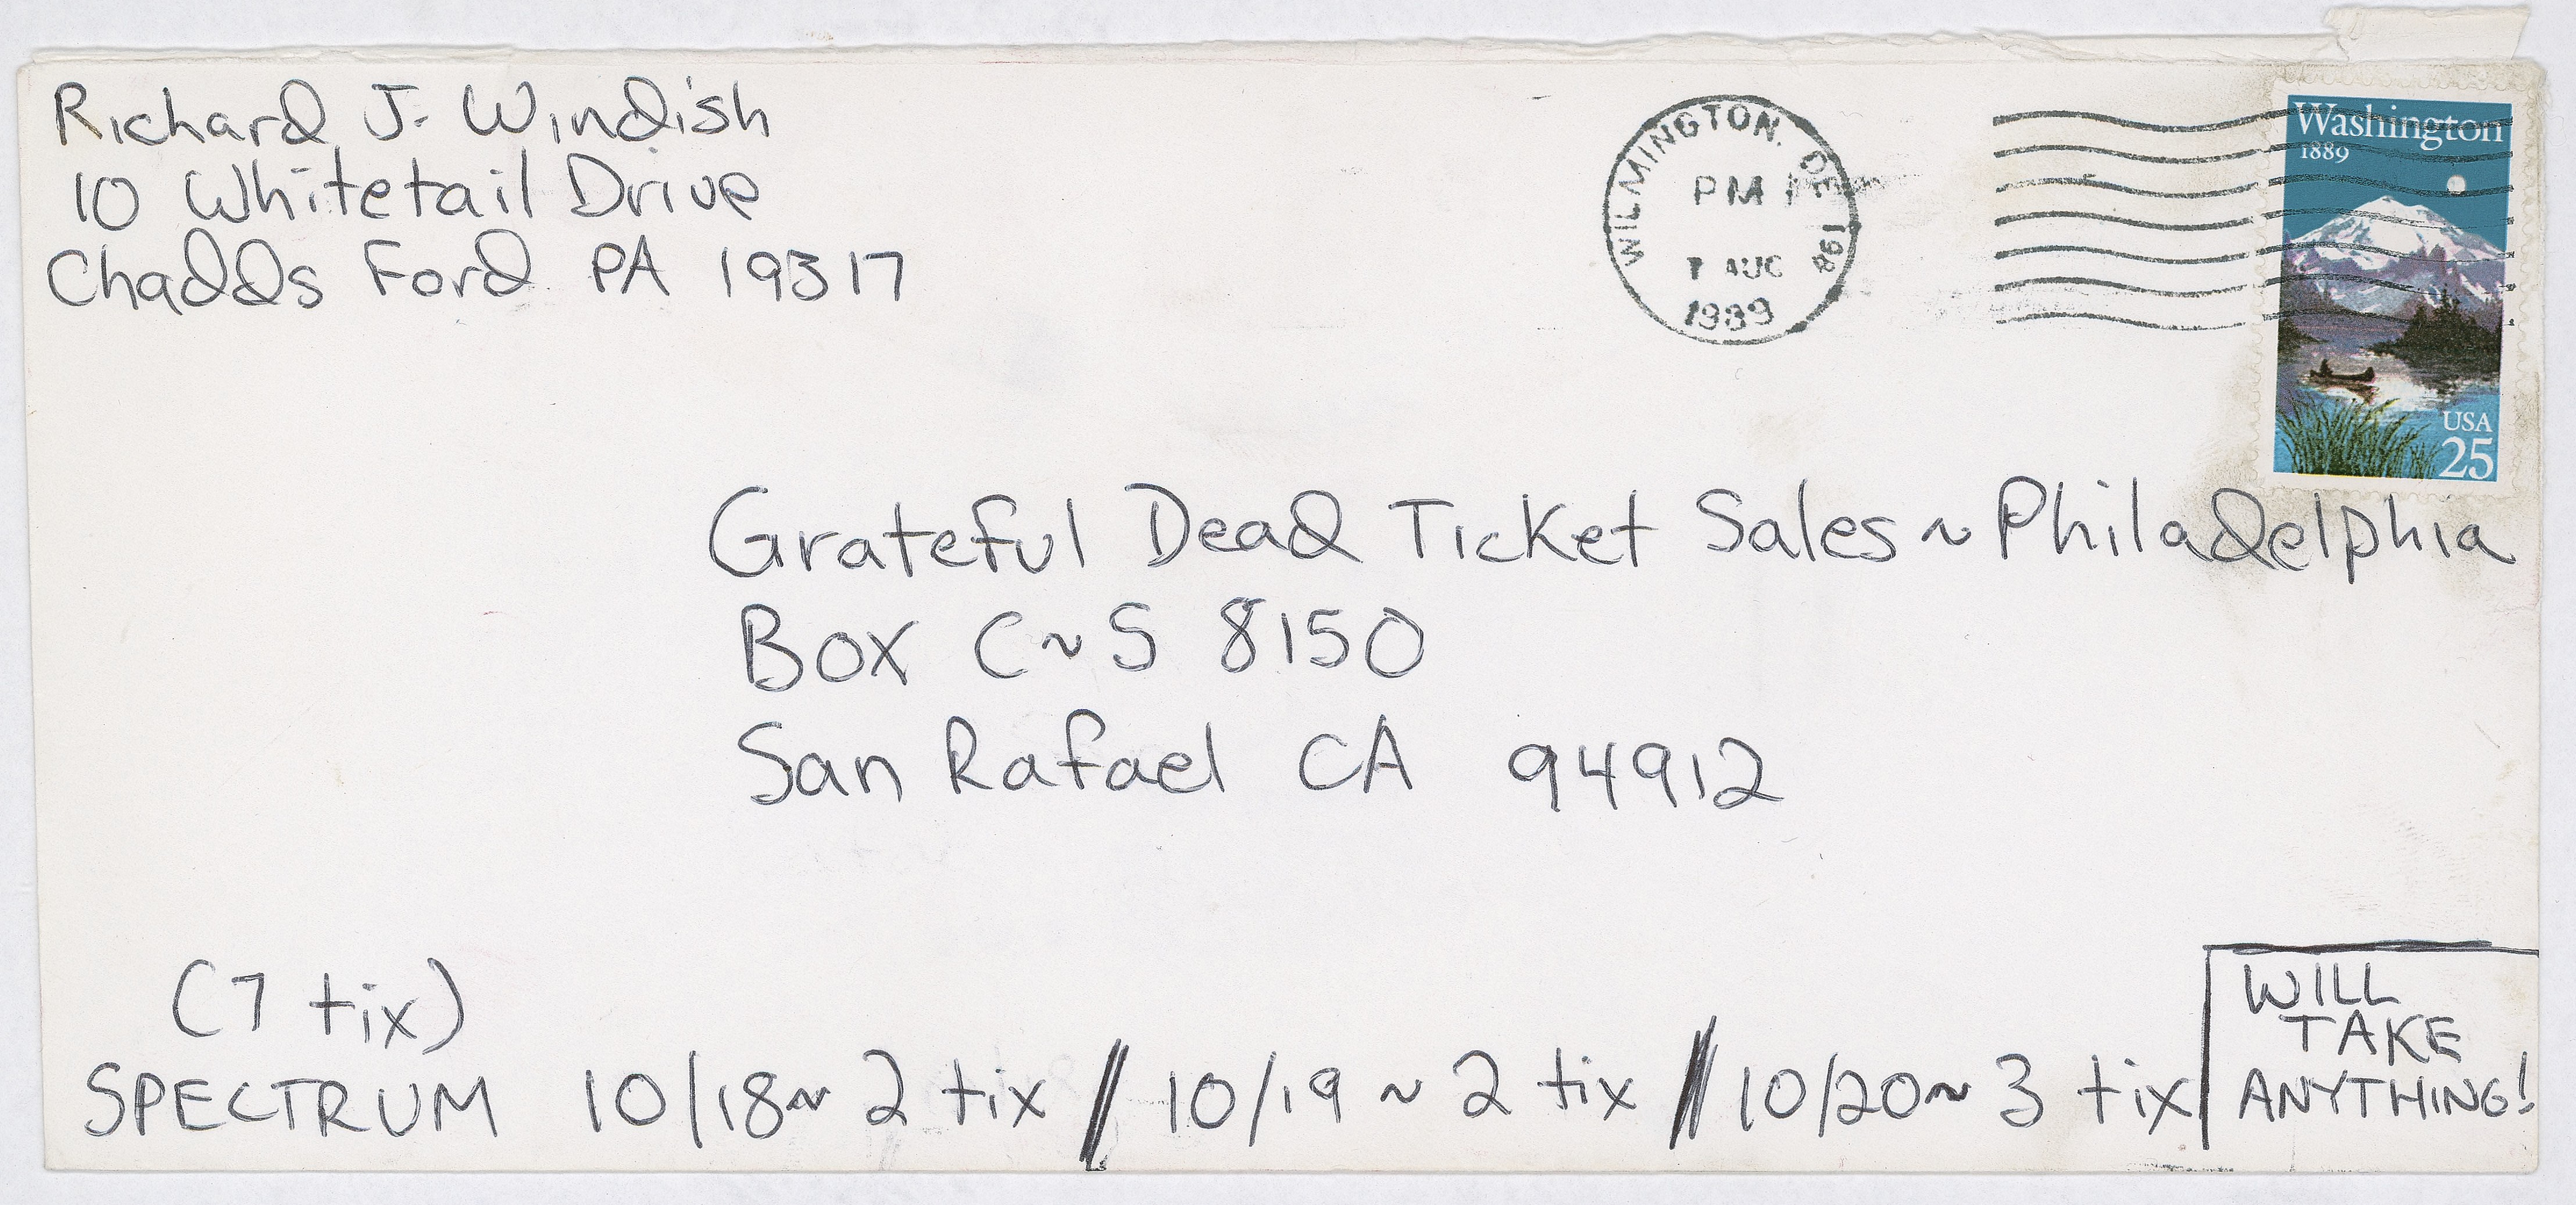 Richard J. Windish
10 Whitetail Drive
Chadds Ford PA 19317
WILMINGTON, DE 198
PM
7 AUG
1989
Washington
1889
USA
25
Grateful Dead Ticket Sales ~ Philadelphia
Box C~S 8150
San Rafael CA 94912
(7 tix)
SPECTRUM 10/18~ 2 tix // 10/19 ~ 2 tix // 10/20~ 3 tix
WILL
TAKE
ANYTHING!